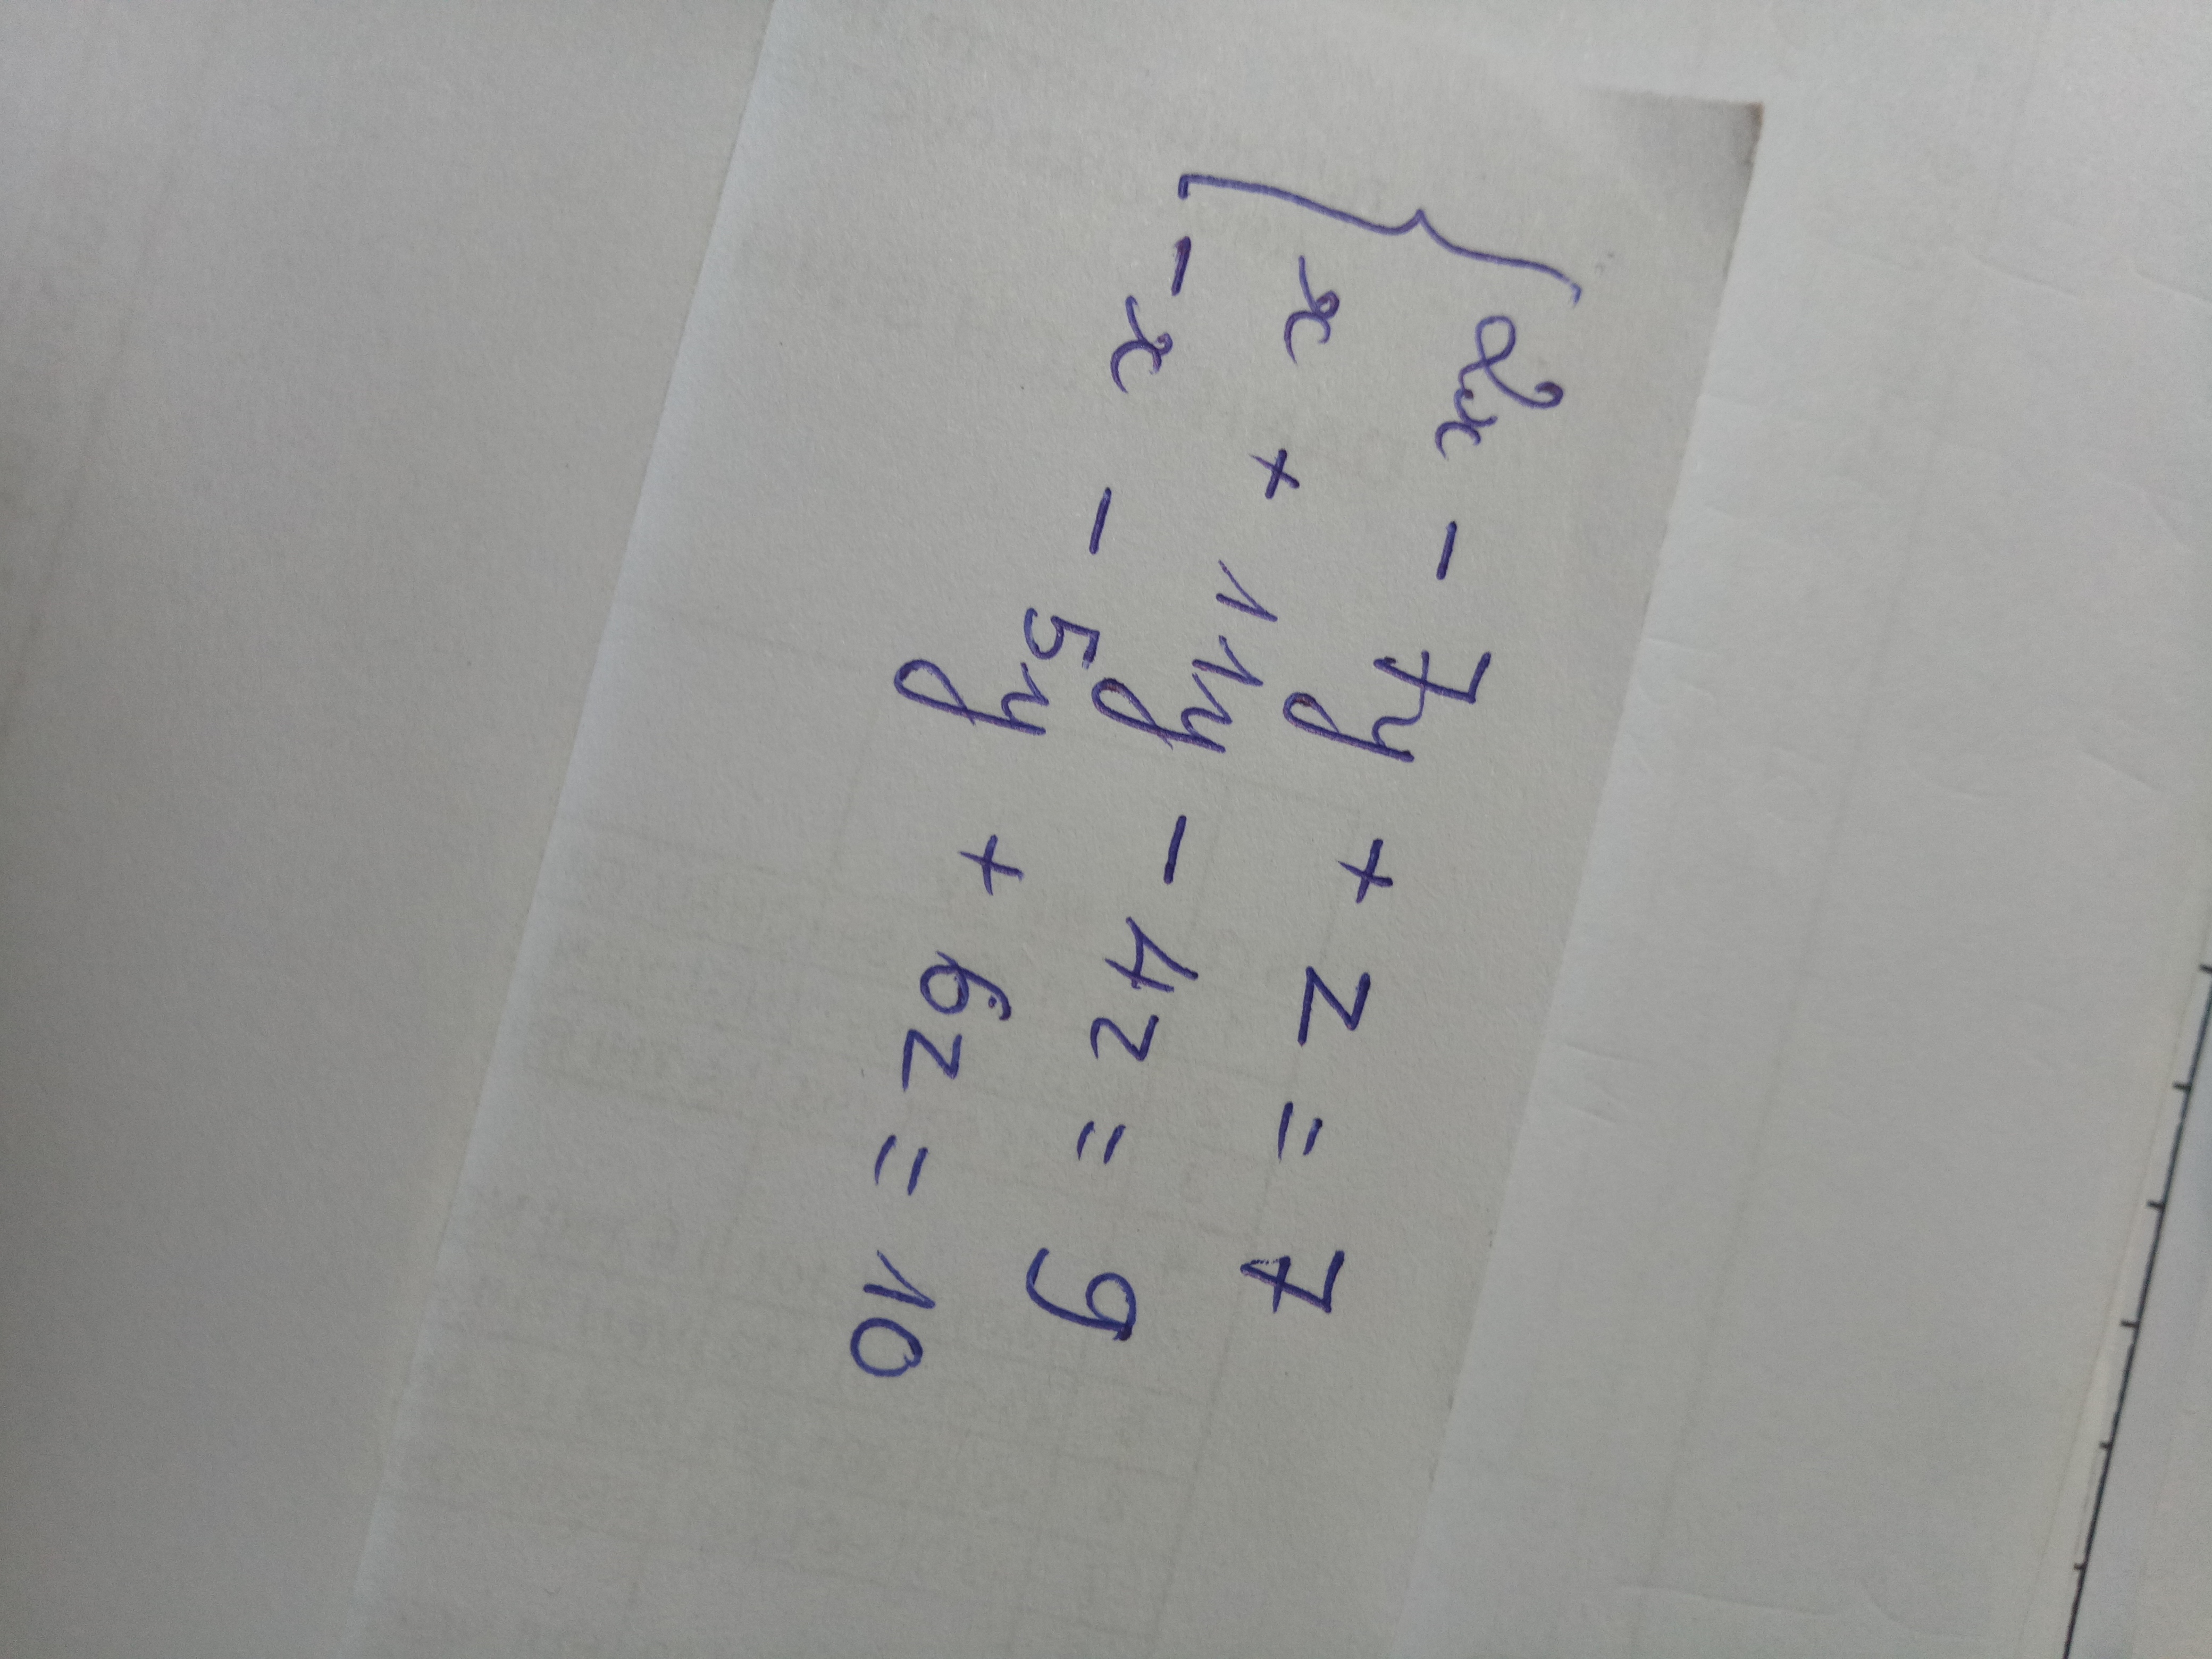 2x - 7y + z = 7
x + 11y - 4z = 9
-x - 5y + 6z = 10